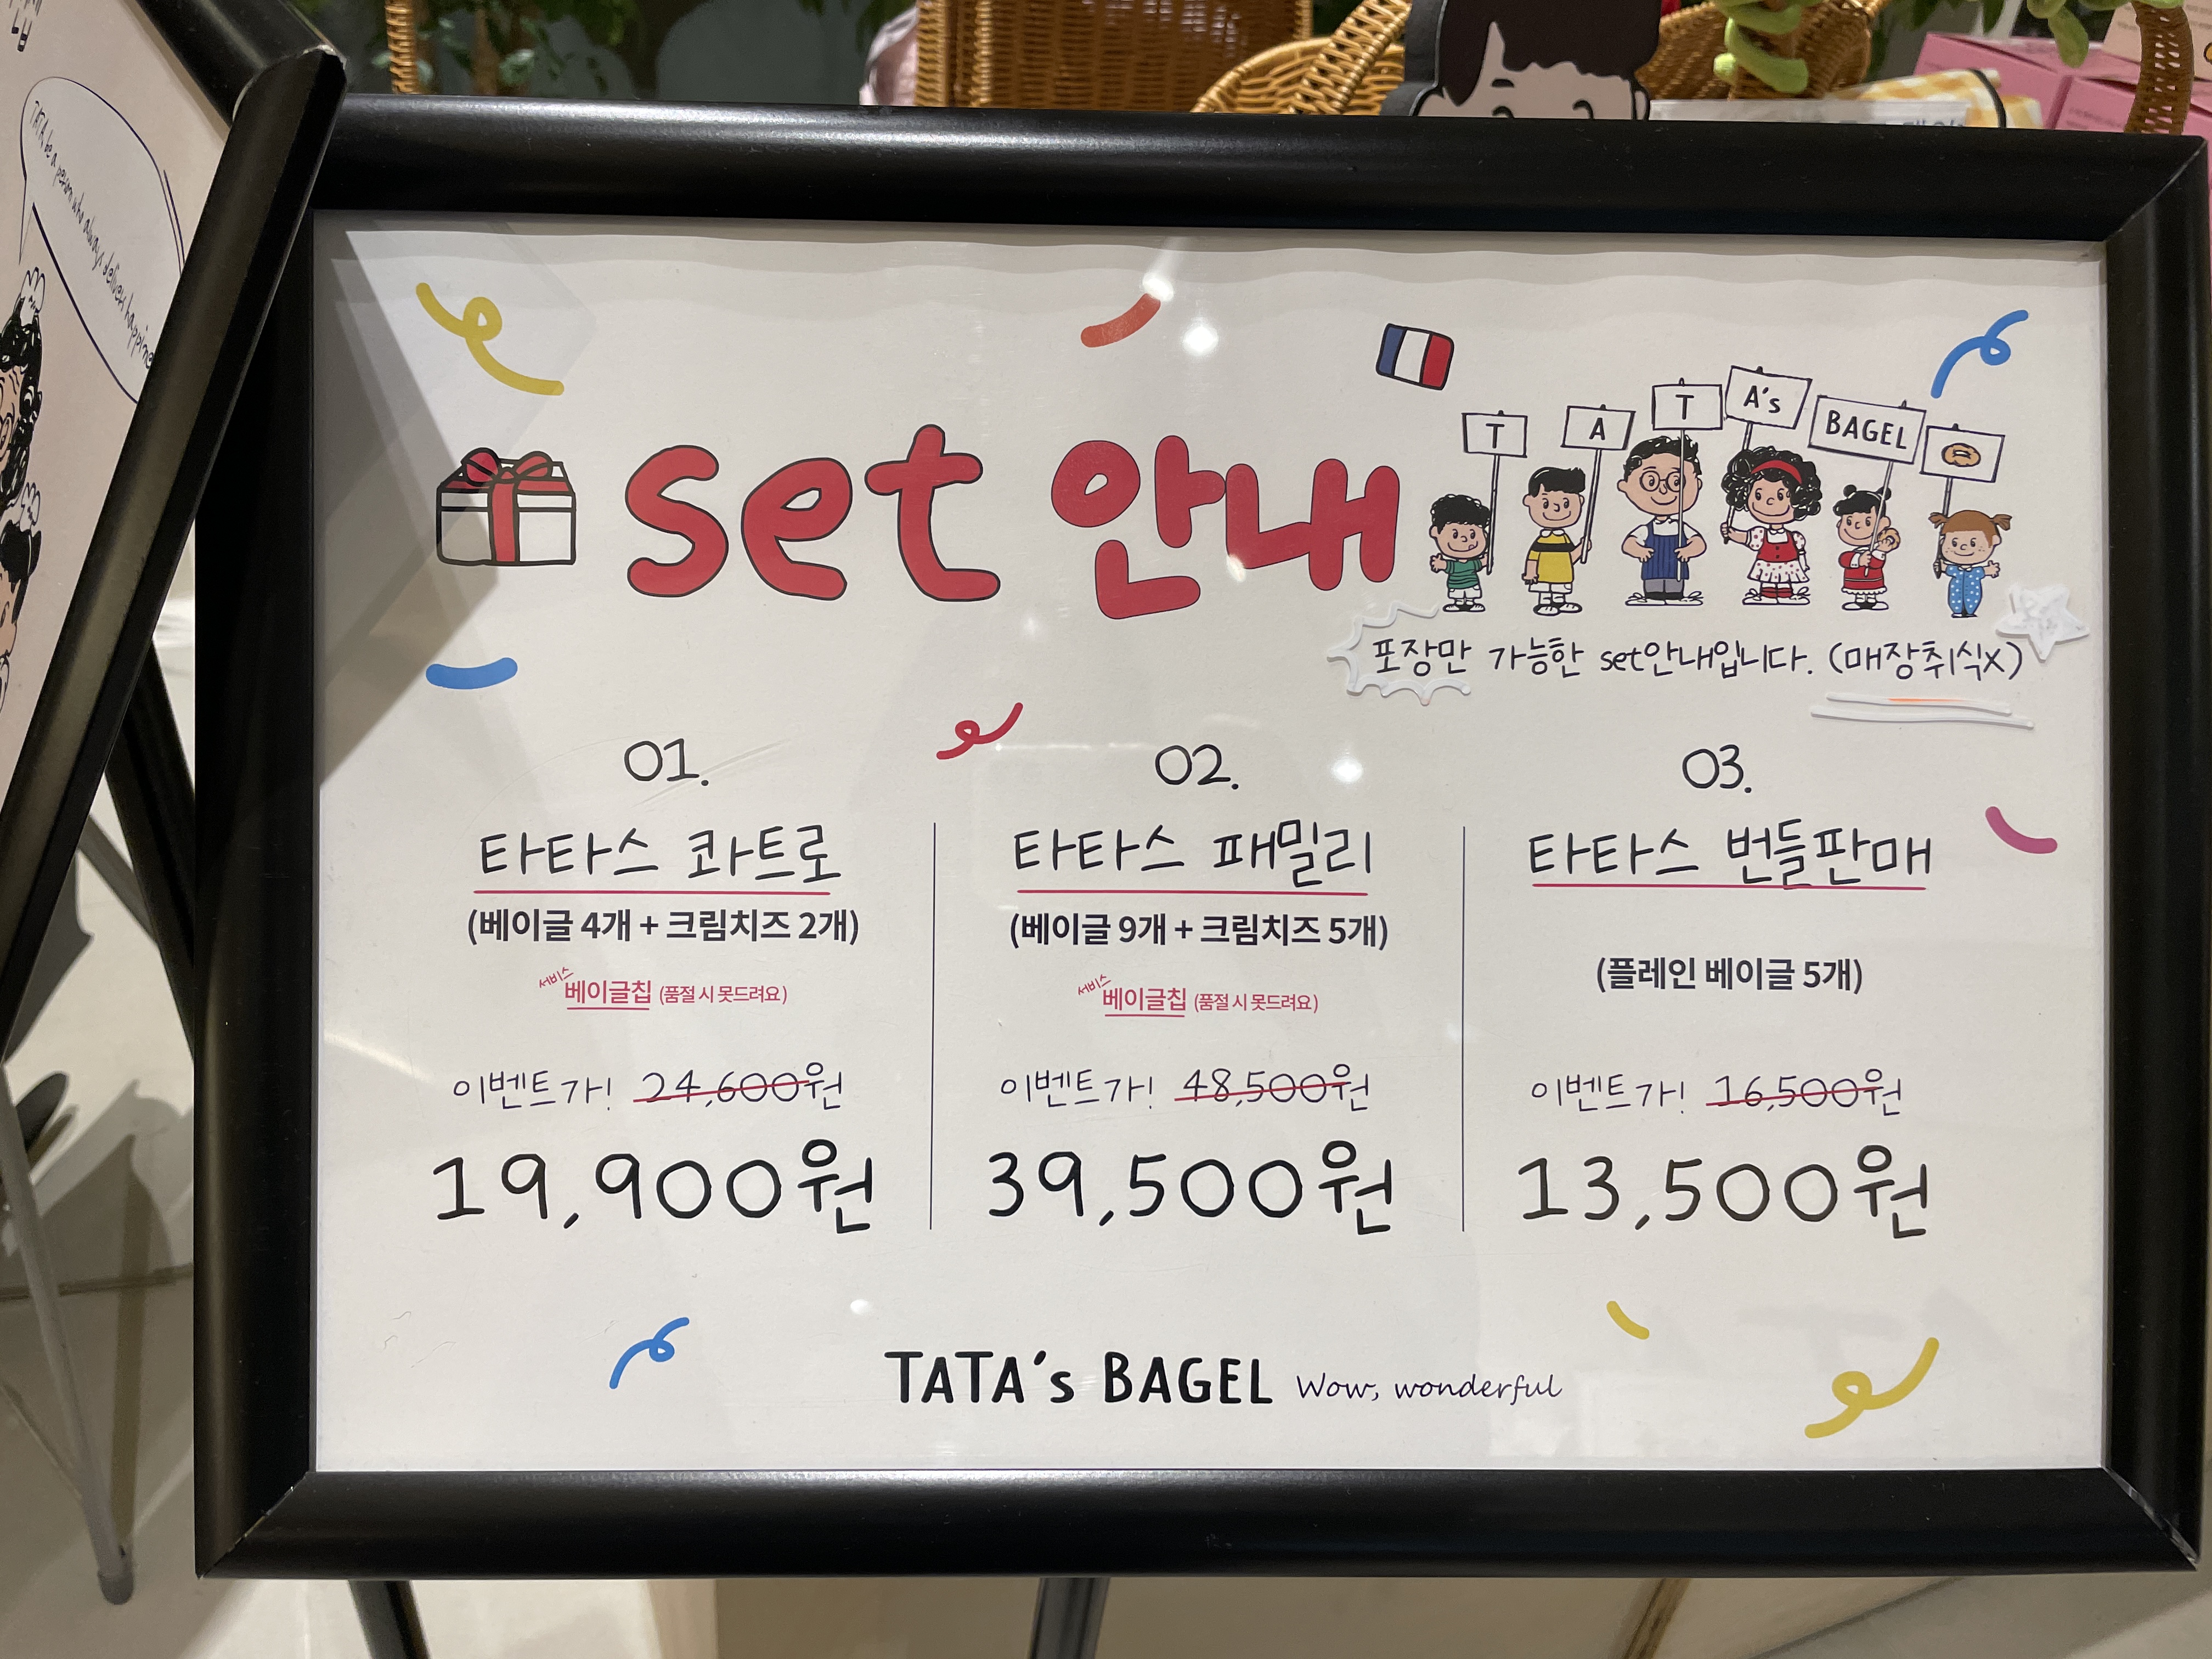 TATA be a person who always delivers happine
T A T A's BAGEL
set 안내
포장만 가능한 set안내입니다. (매장취식X)
01.
타타스 콰트로
(베이글 4개 + 크림치즈 2개)
서비스
베이글칩 (품절 시 못드려요)
이벤트가! 24,600원
19,900원
02.
타타스 패밀리
(베이글 9개 + 크림치즈 5개)
서비스
베이글칩 (품절 시 못드려요)
이벤트가! 48,500원
39,500원
03.
타타스 번들판매
(플레인 베이글 5개)
이벤트가! 16,500원
13,500원
TATA's BAGEL Wow, wonderful